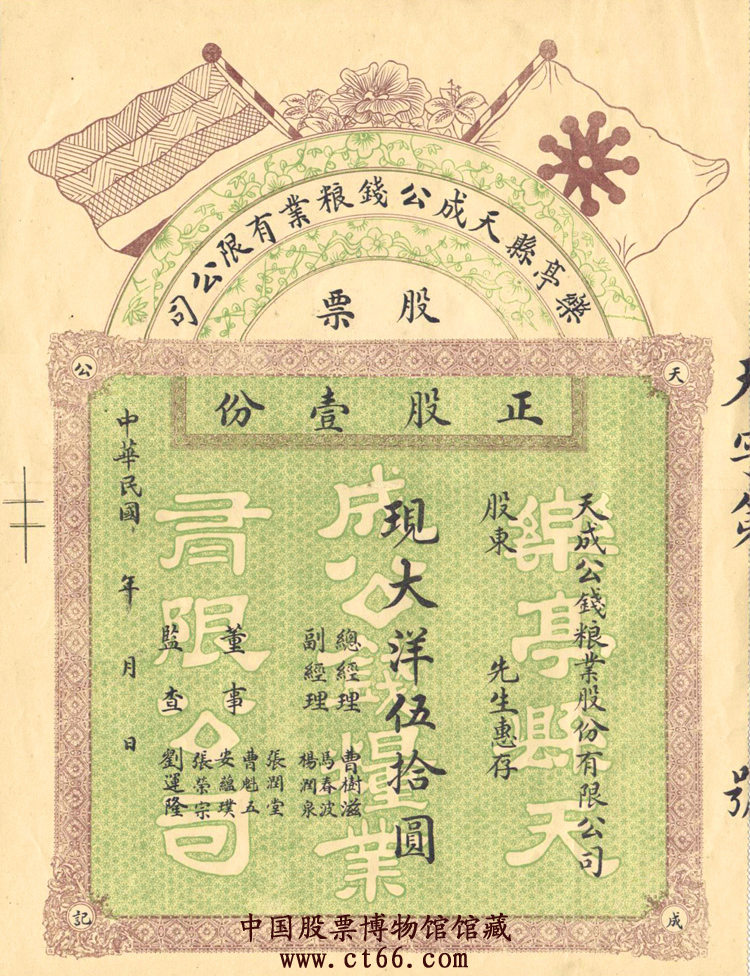 樂亭縣天成公錢粮業有限公司
股票
正股壹份
天
公
成
記
天成公錢粮業股份有限公司
股東 先生惠存
現大洋伍拾圓
總經理 曹樹滋
副經理 馬春波
楊潤泉
董事 張潤堂
曹魁五
安蘊璞
監查 張榮宗
劉運隆
中華民國 年 月 日
樂亭縣天
成公錢糧業
有限公司
號
中国股票博物馆馆藏
www.ct66.com